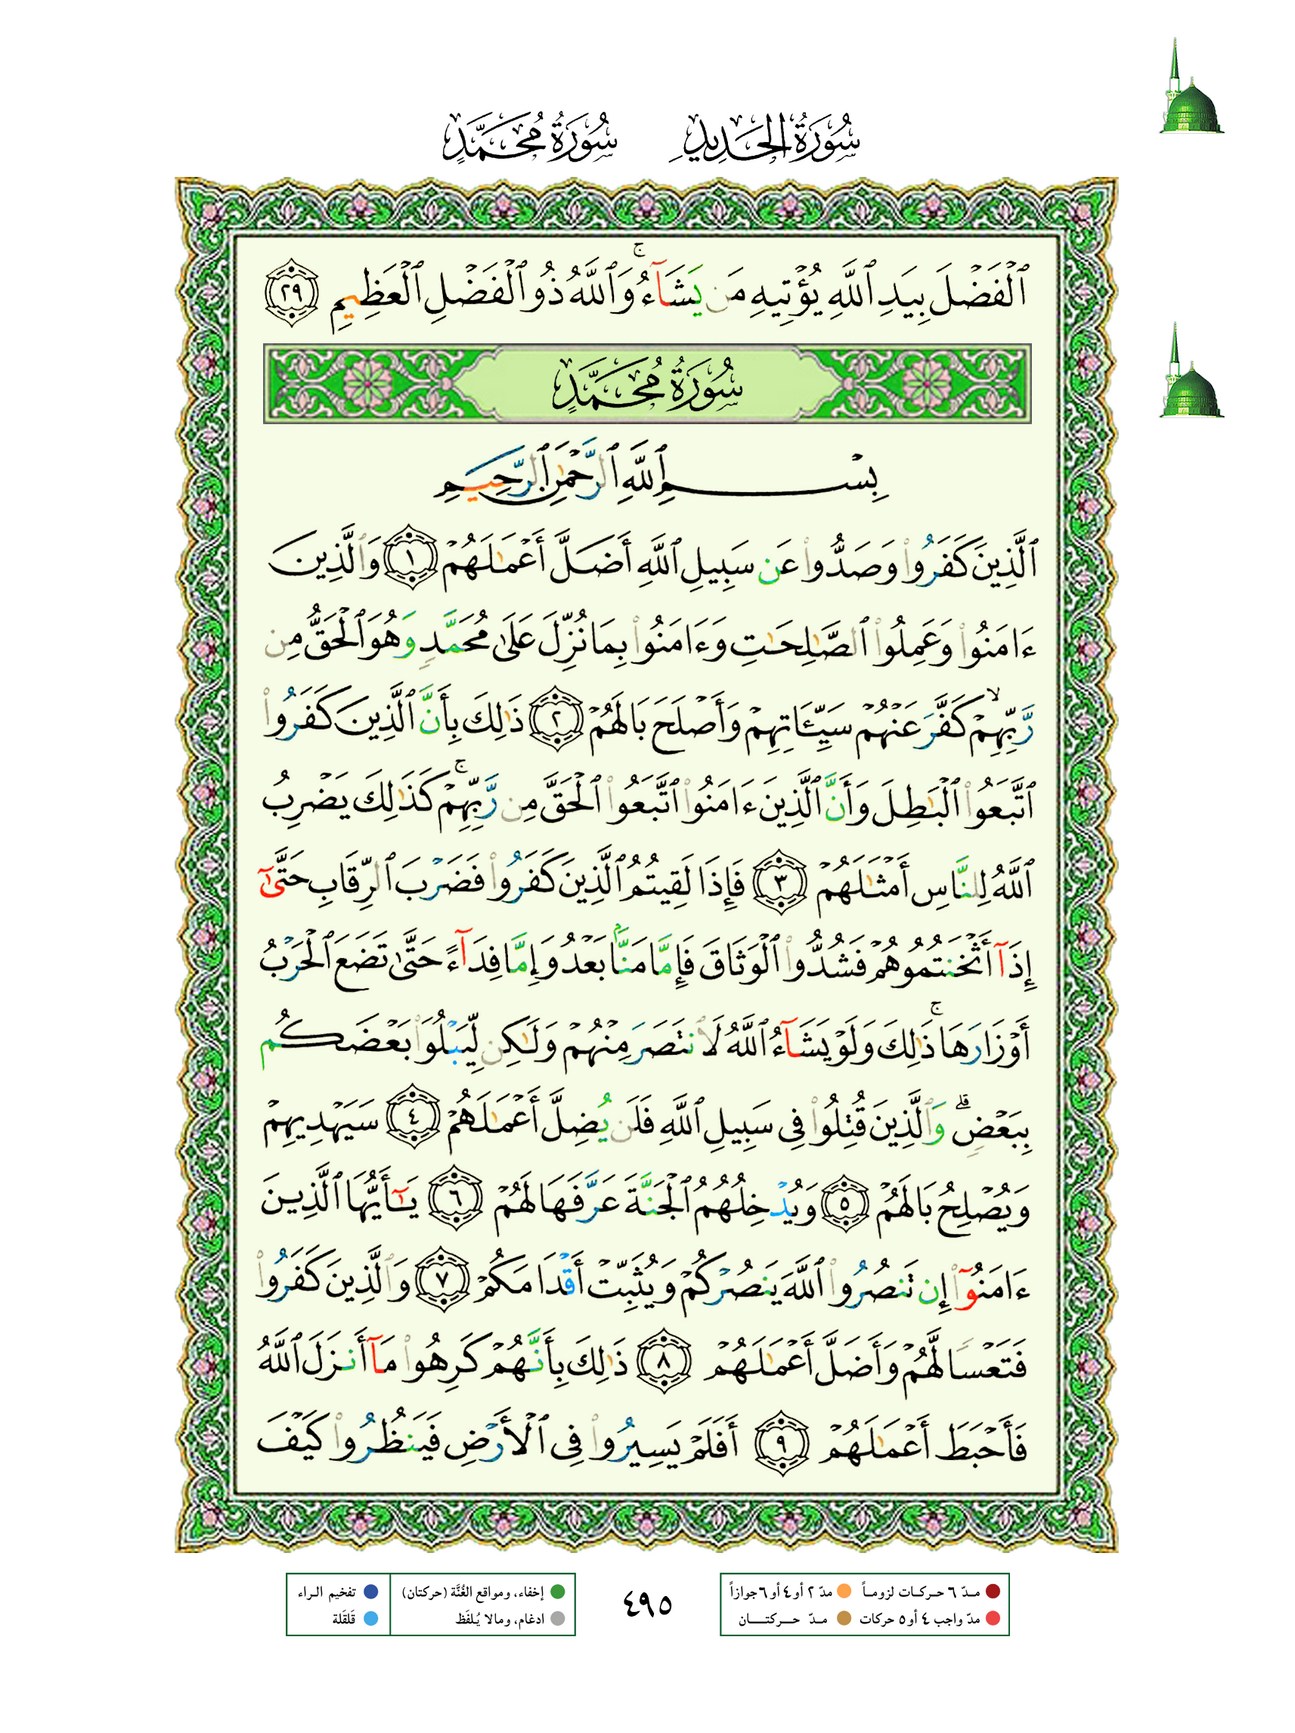 سُورَةُ الحَدِيدِ سُورَةُ مُحَمَّدٍ
ٱلْفَضْلَ بِيَدِ ٱللَّهِ يُؤْتِيهِ مَن يَشَآءُ ۚ وَٱللَّهُ ذُو ٱلْفَضْلِ ٱلْعَظِيمِ ٢٩
سُورَةُ مُحَمَّدٍ
بِسْمِ ٱللَّهِ ٱلرَّحْمَٰنِ ٱلرَّحِيمِ
ٱلَّذِينَ كَفَرُوا۟ وَصَدُّوا۟ عَن سَبِيلِ ٱللَّهِ أَضَلَّ أَعْمَٰلَهُمْ ١ وَٱلَّذِينَ
ءَامَنُوا۟ وَعَمِلُوا۟ ٱلصَّٰلِحَٰتِ وَءَامَنُوا۟ بِمَا نُزِّلَ عَلَىٰ مُحَمَّدٍ وَهُوَ ٱلْحَقُّ مِن
رَّبِّهِمْ ۙ كَفَّرَ عَنْهُمْ سَيِّـَٔاتِهِمْ وَأَصْلَحَ بَالَهُمْ ٢ ذَٰلِكَ بِأَنَّ ٱلَّذِينَ كَفَرُوا۟
ٱتَّبَعُوا۟ ٱلْبَٰطِلَ وَأَنَّ ٱلَّذِينَ ءَامَنُوا۟ ٱتَّبَعُوا۟ ٱلْحَقَّ مِن رَّبِّهِمْ ۚ كَذَٰلِكَ يَضْرِبُ
ٱللَّهُ لِلنَّاسِ أَمْثَٰلَهُمْ ٣ فَإِذَا لَقِيتُمُ ٱلَّذِينَ كَفَرُوا۟ فَضَرْبَ ٱلرِّقَابِ حَتَّىٰٓ
إِذَآ أَثْخَنتُمُوهُمْ فَشُدُّوا۟ ٱلْوَثَاقَ فَإِمَّا مَنًّۢا بَعْدُ وَإِمَّا فِدَآءً حَتَّىٰ تَضَعَ ٱلْحَرْبُ
أَوْزَارَهَا ۚ ذَٰلِكَ وَلَوْ يَشَآءُ ٱللَّهُ لَٱنتَصَرَ مِنْهُمْ وَلَٰكِن لِّيَبْلُوَا۟ بَعْضَكُم
بِبَعْضٍ ۗ وَٱلَّذِينَ قُتِلُوا۟ فِى سَبِيلِ ٱللَّهِ فَلَن يُضِلَّ أَعْمَٰلَهُمْ ٤ سَيَهْدِيهِمْ
وَيُصْلِحُ بَالَهُمْ ٥ وَيُدْخِلُهُمُ ٱلْجَنَّةَ عَرَّفَهَا لَهُمْ ٦ يَٰٓأَيُّهَا ٱلَّذِينَ
ءَامَنُوٓا۟ إِن تَنصُرُوا۟ ٱللَّهَ يَنصُرْكُمْ وَيُثَبِّتْ أَقْدَامَكُمْ ٧ وَٱلَّذِينَ كَفَرُوا۟
فَتَعْسًا لَّهُمْ وَأَضَلَّ أَعْمَٰلَهُمْ ٨ ذَٰلِكَ بِأَنَّهُمْ كَرِهُوا۟ مَآ أَنزَلَ ٱللَّهُ
فَأَحْبَطَ أَعْمَٰلَهُمْ ٩ أَفَلَمْ يَسِيرُوا۟ فِى ٱلْأَرْضِ فَيَنظُرُوا۟ كَيْفَ
مدّ ٦ حركات لزوماً مدّ ٢ أو ٤ أو ٦ جوازاً
مدّ واجب ٤ أو ٥ حركات مدّ حركتان
٤٩٥
إخفاء، ومواقع الغُنَّة (حركتان) تفخيم الراء
ادغام، ومالا يُلفَظ قلقلة